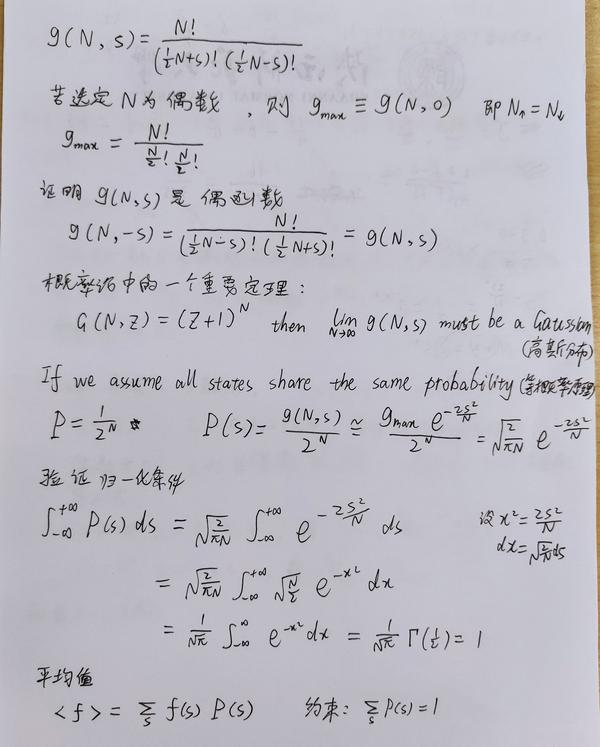 g(N,s) = N! / ((½N+s)! (½N−s)!)
若选定N为偶数，则 g_max ≡ g(N,0) 即 N↑ = N↓
g_max = N! / (N/2! N/2!)
证明 g(N,s) 是偶函数
g(N,−s) = N! / ((½N−s)! (½N+s)!) = g(N,s)
概率论中的一个重要定理：
G(N,Z) = (Z+1)^N then lim_{N→∞} g(N,s) must be a Gaussian
(高斯分布)
If we assume all states share the same probability (等概率原理)
P = 1/2^N P(s) = g(N,s)/2^N ≅ g_max e^{−2s²/N} / 2^N = √(2/πN) e^{−2s²/N}
验证归一化条件
∫_{−∞}^{+∞} P(s) ds = √(2/πN) ∫_{−∞}^{+∞} e^{−2s²/N} ds 设 x² = 2s²/N
dx = √(2/N) ds
= √(2/πN) ∫_{−∞}^{+∞} √(N/2) e^{−x²} dx
= 1/√π ∫_{−∞}^{∞} e^{−x²} dx = 1/√π Γ(½) = 1
平均值
<f> = Σ_s f(s) P(s) 约束：Σ_s P(s) = 1